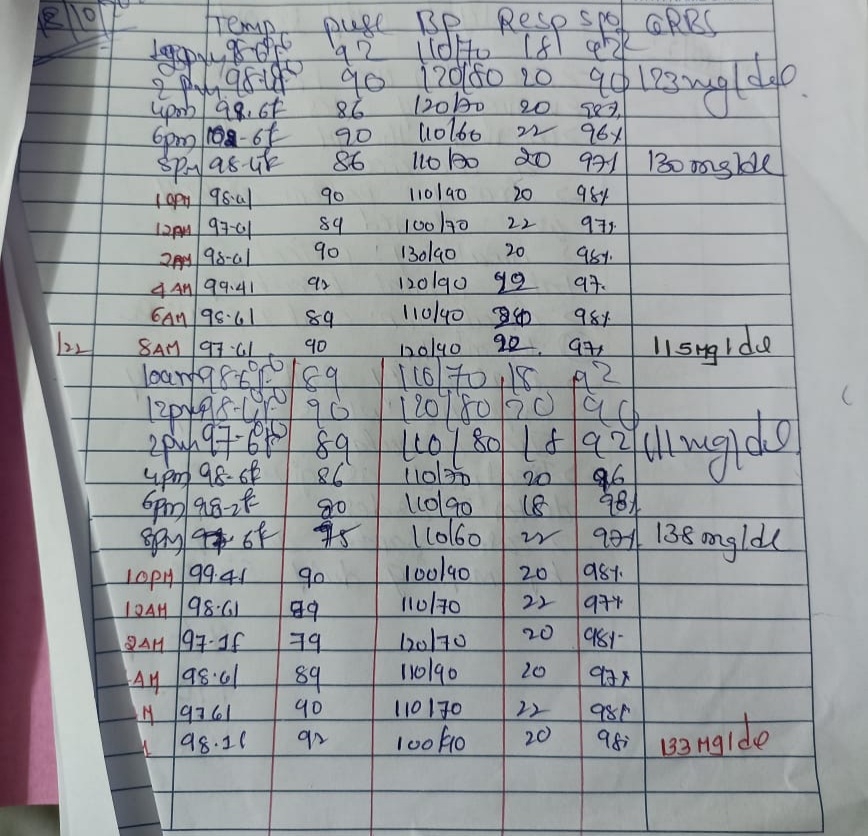 Temp pulse BP Resp spo2 GRBS
98.6f 92 110/70 18 92
2 pm 98.6f 90 120/80 20 90 123mg/del
4pm 98.6f 86 120/70 20 98%
6pm 6f 90 110/60 22 96%
8pm 98.4f 86 110/70 20 97% 130mg/de
10PM 98.6f 90 110/90 20 98%
12AM 97.6f 89 100/70 22 97%
2AM 98.6f 90 130/90 20 98%
4AM 99.4f 92 120/90 97.
6AM 98.6f 89 110/90 98%
1/22 8AM 97.6f 90 120/90 20. 97% 115mg/del
10am 98.6f 89 110/70 18 92
12pm 98.6f 90 120/80 20 90
2pm 97.6f 89 110/80 18 92 111mg/del
4pm 98.6f 86 110/70 20 96
6pm 98.2f 110/90 18 98%
8pm 6f 78 110/60 22 97% 138mg/del
10PM 99.4f 90 100/90 20 98%
12AM 98.6f 110/70 22 97%
2AM 97.1f 79 120/70 20 98%
AM 98.6f 89 110/90 20 97%
M 97.6f 90 110/70 22 98%
98.1f 92 20 98% 133Mg/de